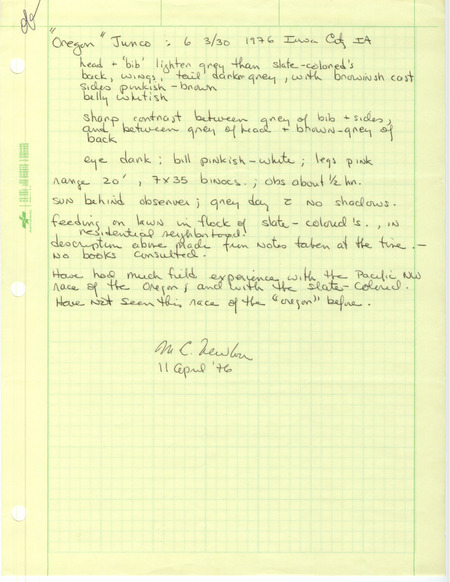 "Oregon" Junco : 6 3/30 1976 Iowa City IA
head + 'bib' lighter grey than slate-colored's
back, wings, tail darker grey, with brownish cast
sides pinkish-brown
belly whitish
sharp contrast between grey of bib + sides,
and between grey of head + brown-grey of
back
eye dark; bill pinkish-white; legs pink
range 20', 7x35 binocs.; obs about 1/2 hr.
sun behind observer; grey day c̄ no shadows.
feeding on lawn in flock of slate-colored's., in
residential neighborhood.
description above made from notes taken at the time.-
no books consulted.
Have had much field experience with the Pacific NW
race of the Oregon, and with the slate-colored.
Have not seen this race of the "oregon" before.
M. C. Newlon
11 April '76